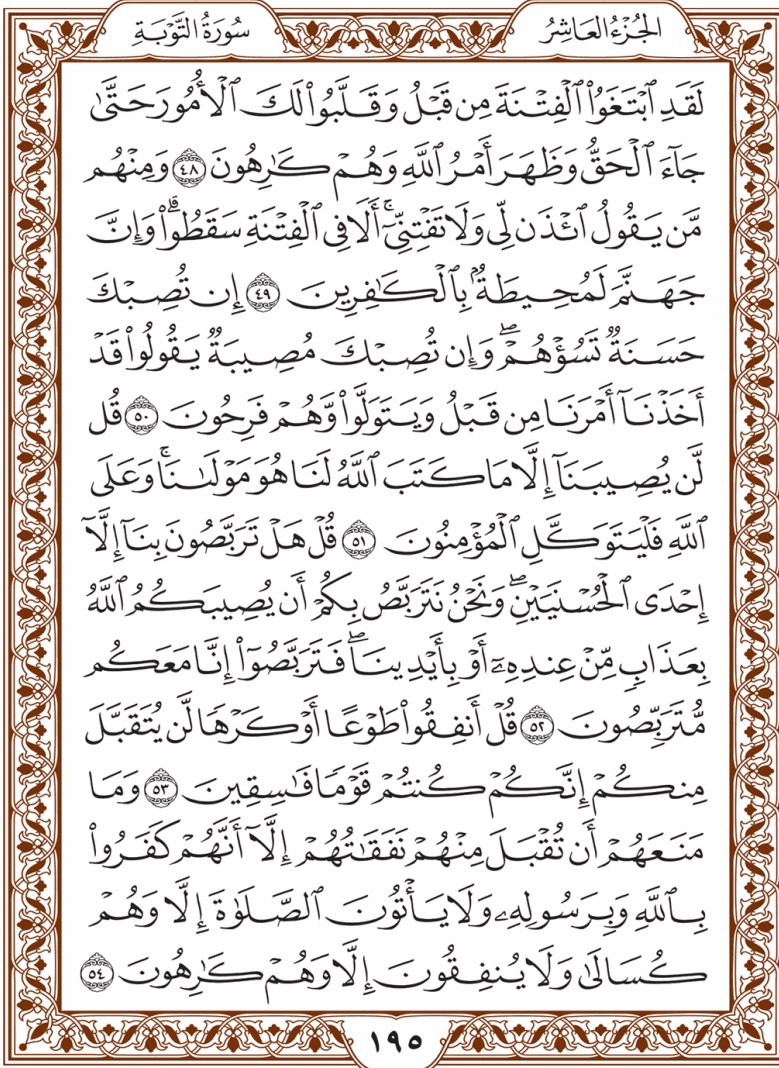 الجُزْءُ العَاشِرُ
سُورَةُ التَّوْبَةِ
لَقَدِ ٱبْتَغَوُا۟ ٱلْفِتْنَةَ مِن قَبْلُ وَقَلَّبُوا۟ لَكَ ٱلْأُمُورَ حَتَّىٰ
جَآءَ ٱلْحَقُّ وَظَهَرَ أَمْرُ ٱللَّهِ وَهُمْ كَٰرِهُونَ ٤٨ وَمِنْهُم
مَّن يَقُولُ ٱئْذَن لِّى وَلَا تَفْتِنِّىٓ ۚ أَلَا فِى ٱلْفِتْنَةِ سَقَطُوا۟ ۗ وَإِنَّ
جَهَنَّمَ لَمُحِيطَةٌۢ بِٱلْكَٰفِرِينَ ٤٩ إِن تُصِبْكَ
حَسَنَةٌ تَسُؤْهُمْ ۖ وَإِن تُصِبْكَ مُصِيبَةٌ يَقُولُوا۟ قَدْ
أَخَذْنَآ أَمْرَنَا مِن قَبْلُ وَيَتَوَلَّوا۟ وَّهُمْ فَرِحُونَ ٥٠ قُل
لَّن يُصِيبَنَآ إِلَّا مَا كَتَبَ ٱللَّهُ لَنَا هُوَ مَوْلَىٰنَا ۚ وَعَلَى
ٱللَّهِ فَلْيَتَوَكَّلِ ٱلْمُؤْمِنُونَ ٥١ قُلْ هَلْ تَرَبَّصُونَ بِنَآ إِلَّآ
إِحْدَى ٱلْحُسْنَيَيْنِ ۖ وَنَحْنُ نَتَرَبَّصُ بِكُمْ أَن يُصِيبَكُمُ ٱللَّهُ
بِعَذَابٍ مِّنْ عِندِهِۦٓ أَوْ بِأَيْدِينَا ۖ فَتَرَبَّصُوٓا۟ إِنَّا مَعَكُم
مُّتَرَبِّصُونَ ٥٢ قُلْ أَنفِقُوا۟ طَوْعًا أَوْ كَرْهًا لَّن يُتَقَبَّلَ
مِنكُمْ إِنَّكُمْ كُنتُمْ قَوْمًا فَٰسِقِينَ ٥٣ وَمَا
مَنَعَهُمْ أَن تُقْبَلَ مِنْهُمْ نَفَقَٰتُهُمْ إِلَّآ أَنَّهُمْ كَفَرُوا۟
بِٱللَّهِ وَبِرَسُولِهِۦ وَلَا يَأْتُونَ ٱلصَّلَوٰةَ إِلَّا وَهُمْ
كُسَالَىٰ وَلَا يُنفِقُونَ إِلَّا وَهُمْ كَٰرِهُونَ ٥٤
١٩٥